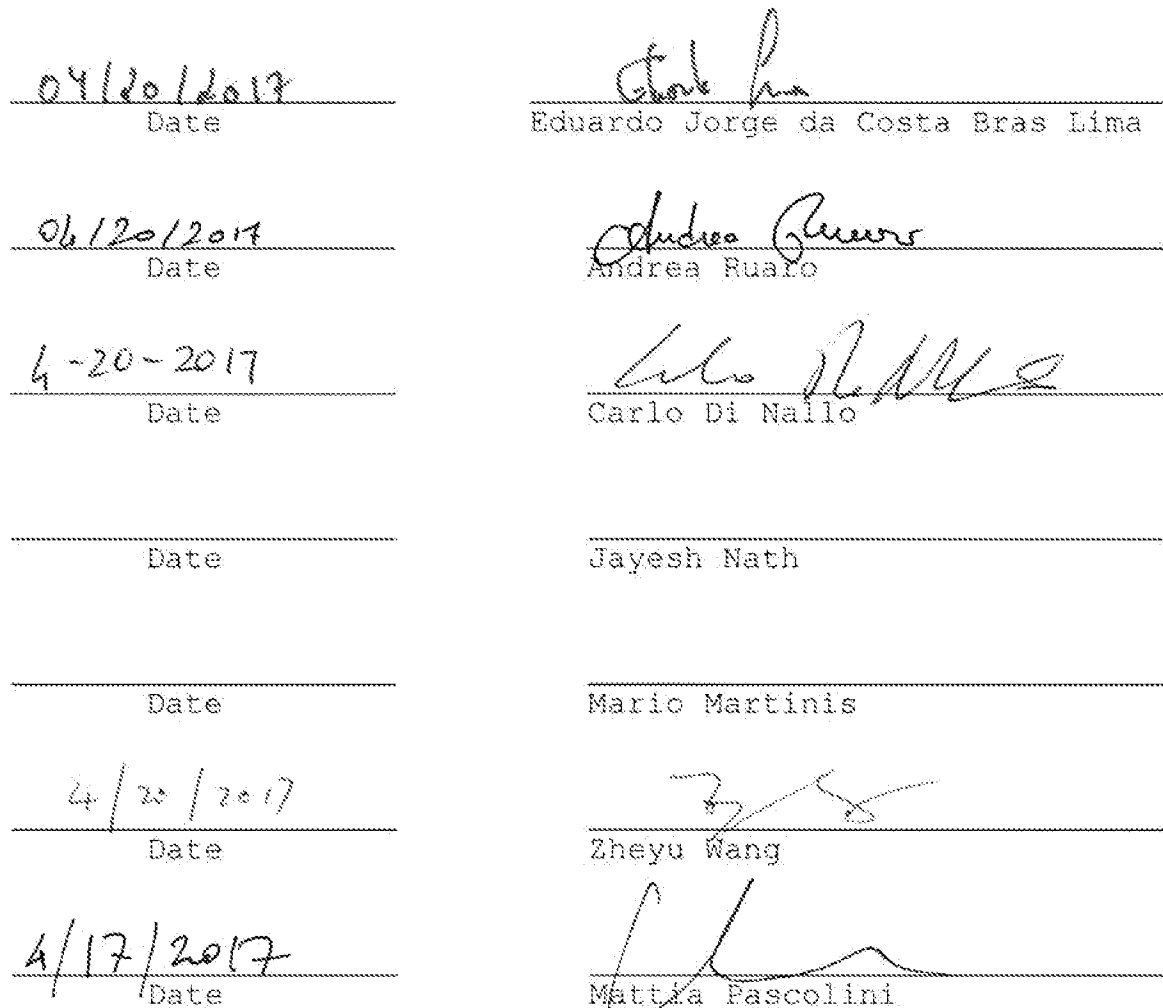 04/20/2017
Date Eduardo Jorge da Costa Bras Lima
04/20/2017 Andrea Ruaro
Date Andrea Ruaro
4-20-2017 Carlo Di Nallo
Date Carlo Di Nallo
Date Jayesh Nath
Date Mario Martinis
4/20/2017
Date Zheyu Wang
4/17/2017
Date Mattia Pascolini